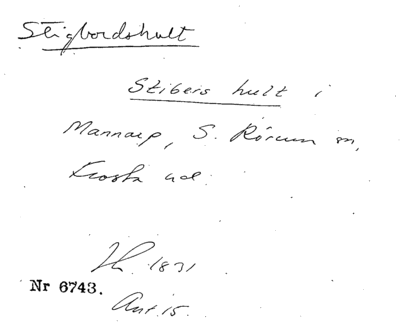 Stigbordshult
Stibers hult i
Mannarp, S. Rörum sn,
Frosta hd.
1831
Nr 6743.
Ant. 15.